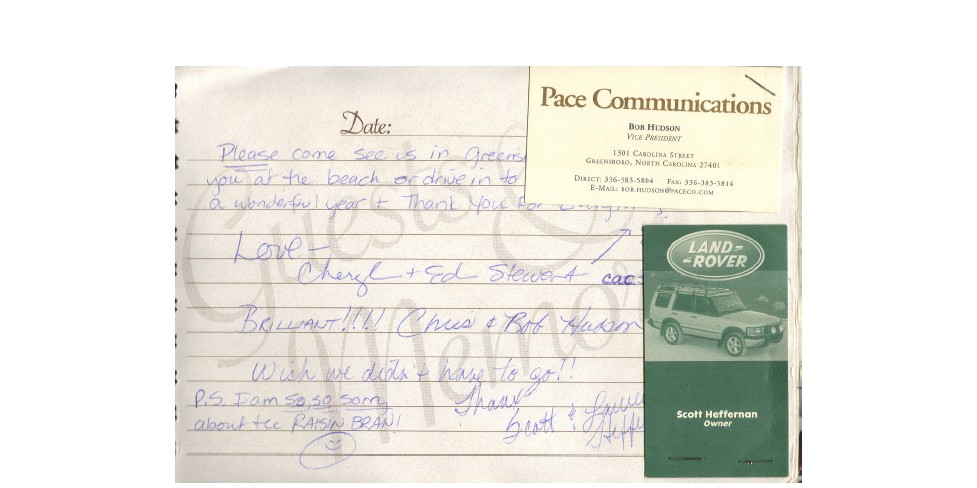 Date:
Please come see us in Greens
you at the beach or drive in to
a wonderful year + Thank You For
Love -
Cheryl + Ed Stewart
cac
BRILLIANT!!!! Chris & Bob Hudson
Wish we didn't have to go!!
P.S. I am so, so sorry
about the RAISIN BRAN!
Thanx
Scott &
Guests &
Memo
Pace Communications
BOB HUDSON
VICE PRESIDENT
1301 CAROLINA STREET
GREENSBORO, NORTH CAROLINA 27401
DIRECT: 336-383-5804 FAX: 336-383-5814
E-MAIL: BOB.HUDSON@PACECO.COM
LAND-
-ROVER
Scott Heffernan
Owner